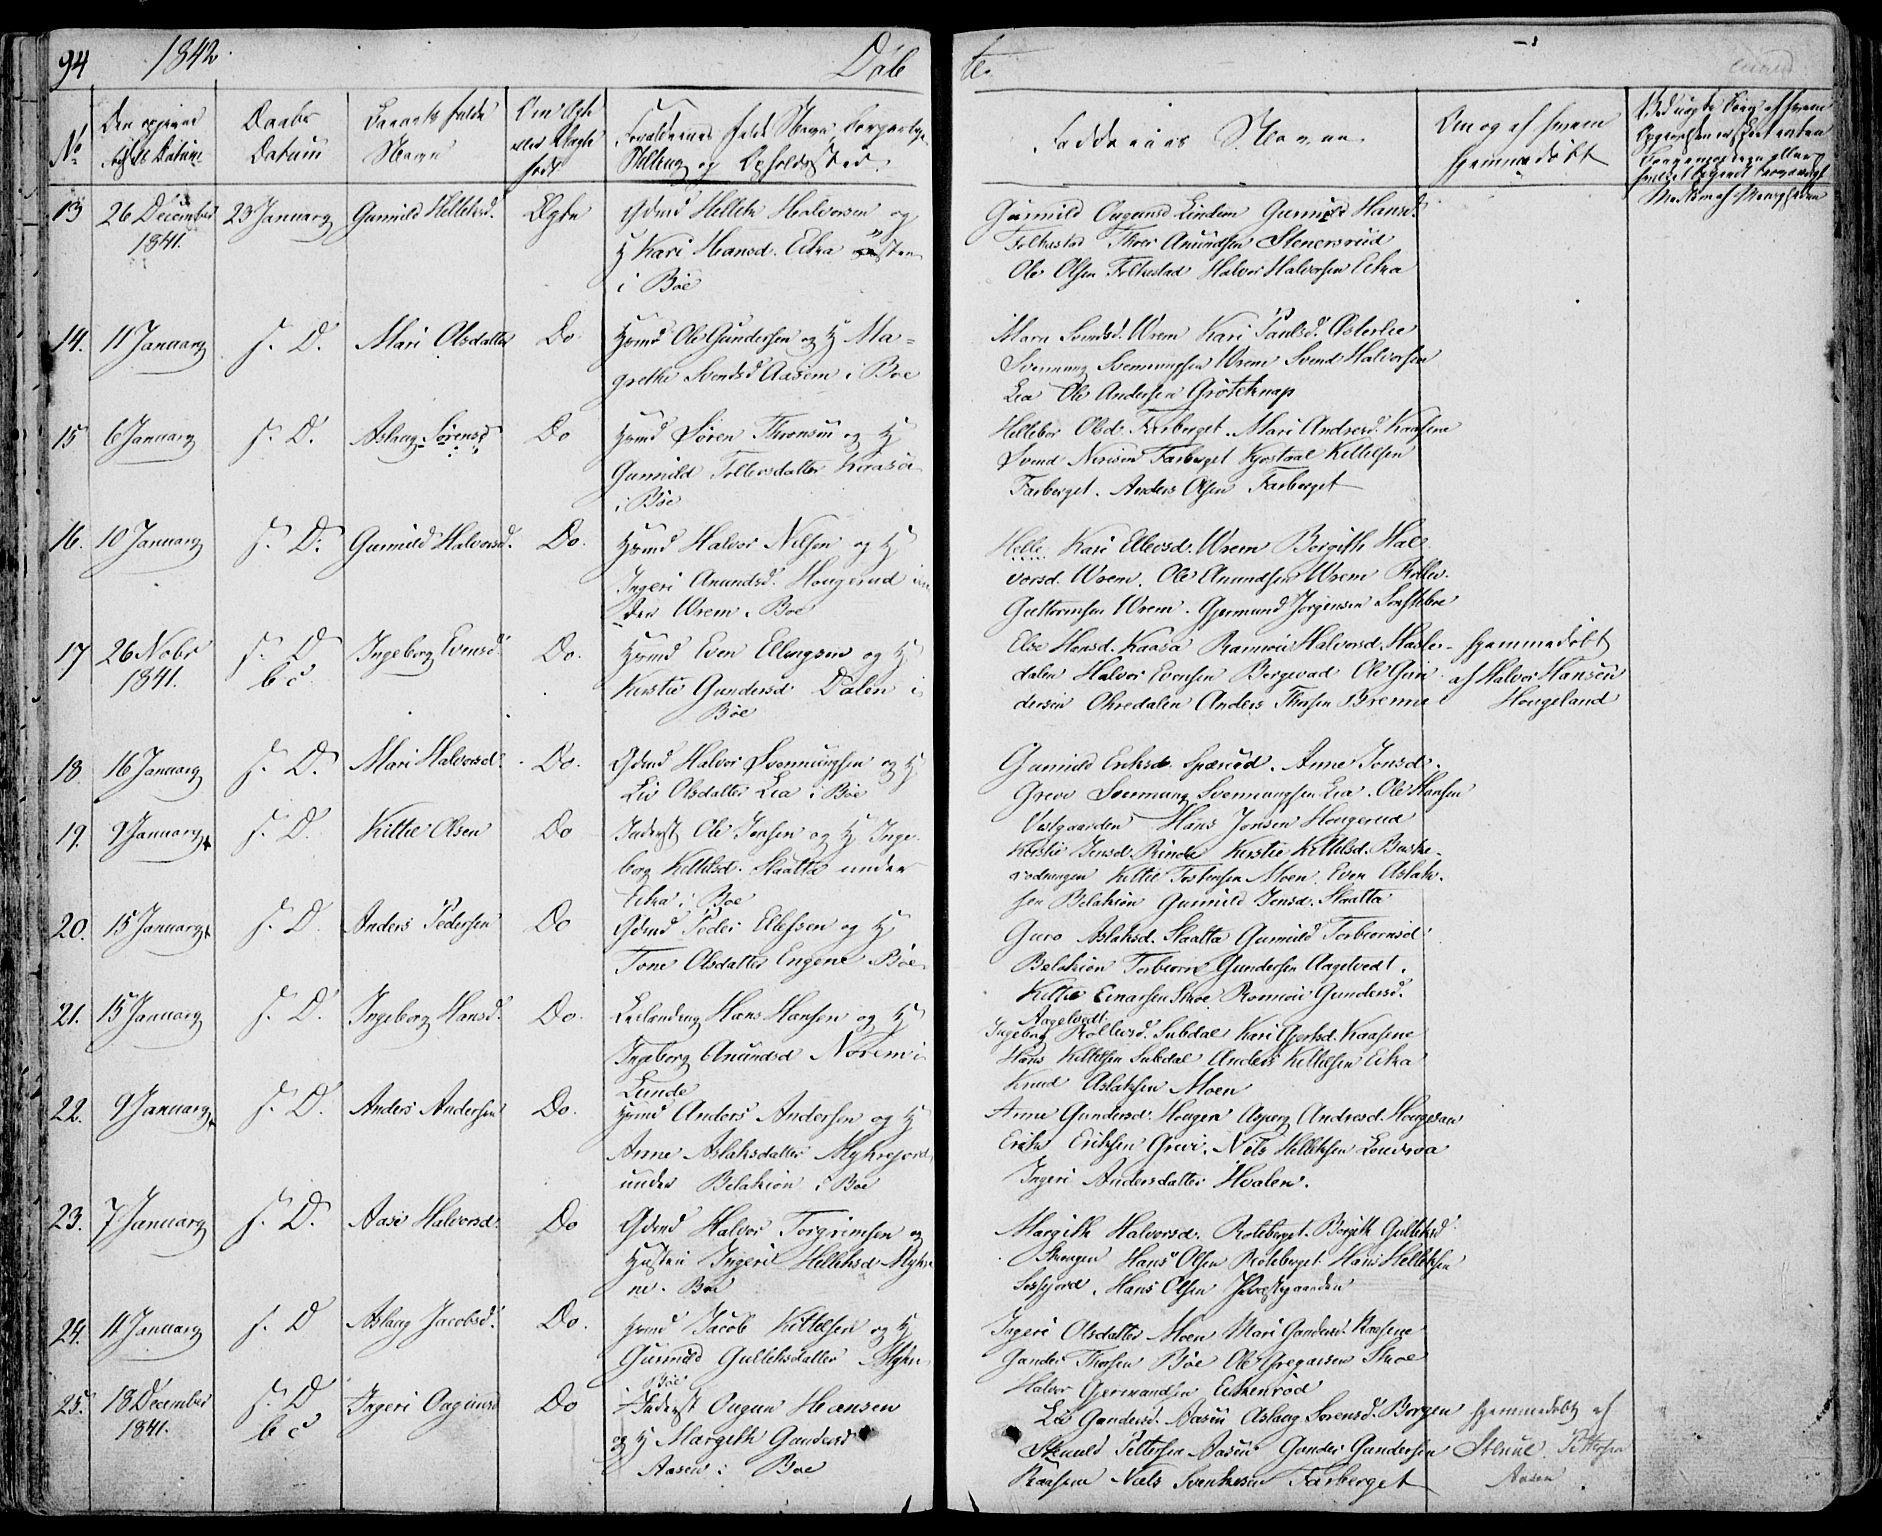 94 1842. Døb te.
No
Den opgivne Fødsels Datum
Daabs Datum
Barnets fulde Navn
Om Ægte eller Uægte født
Forældrenes fulde Navn, Borgerlige Stilling og Opholdssted.
Faddernes Navne
Om og af hvem hjemmedøbt
13 26 December 1841. 23 January Gunild Helleksd. Ægte Gdmd Hellek Halvorsen og
H Kari Hansd. Eika østen
i Bøe
Gunild Ougunsd Lindem Gunild Hansd.
Folkestad Thor Anundsen Stenersrud
Ole Olsen Folkestad Halvor Halvorsen Eika
14. 11 January s. D. Mari Olsdatter Do Hmd Ole Gundersen og H Ma=
grethe Svendsd Aasem i Boe
Maren Svendsd. Wrem Kari Paulsd. Østerlie
Svennung Svennungsen Wrem Svend Halvorsen
Lia Ole Andersen Grøteknap
15 6 January s. D. Aslaug Sørensd Do Hmd Søren Thronsen og H
Gunild Tollevsdatter Kaasa
i Bøe
Hellebor Olsd. Farberget. Mari Andresd. Kaasene
Svend Nerisen Farberget Kjøstaal Kittelsen
Farberget. Anders Olsen Farberget
16. 10 January s. D. Gunild Halvorsd. Do. Hmd Halvor Nilsen og H
Ingeri Anundsd. Hougerud un
der Wrem. Boe
Helle Kari Ellevsd. Wrem Bergith Hal
vorsd. Wrem. Ole Anundsen Wrem Rollev.
Guttormsen Wrem. Gjermund Jørgensen
17 26 Nobr 1841. s. D bc Ingeborg Evensd Do. Hmd Even Ellingsen og H
Kirstie Gundersd Dalen i
Bøe
Else Hansd. Kaasa Rannvei Halvorsd. Hasle-
dalen Halvor Evensen Bergevad Ole Gun
dersen Okredalen Anders Thorsen Brenne
Hjemmedøbt
af Halvor Hansen
Hougeland
18 16 January s. D. Mari Halvorsd. Do. Gdmd Halvor Svennungsen og H
Liv Olsdatter Lia i Bøe
Gunild Eriksd. Anne Jonsd.
Grevi Svennung Svennungsen Lia. Ole Hansen
Vestgaarden Hans Jensen Hougerud
19. 9 January s. D. Kittil Olsen Do Inderst Ole Jensen og H Inge
borg Kittilsd. Skaatta under
Eika i Boe
Kirstie Jensd. Rinde Kirstie Kittilsd. Buske-
rødningen Kittil Tostensen Moen. Even Aslak-
sen Belakion Gunild Jensd. Skaatta
20. 15 January s. D. Anders Pedersen Do Gdmd Peder Ellefsen og H
Tone Olsdatter Engene Bøe
Guro Aslaksd. Skaatta Gunild Torbiørnsd
Belakion Torbiørn Gundersen Aagetvedt.
Kittil Einarsen Skoe Rannvei Gundersd.
Aagetvedt
21. 15 January s. D. Ingeborg Hansd. Do. Hans Hansen og H
Ingeborg Anundsd Norem i
Lunde
Ingeborg Rollevsd. Subdal Kari Gjertsd. Kaasene
Hans Kittelsen Subdal Anders Kittelsen Eika
Knud Aslaksen Moen
22. 9 January s. D. Anders Andersen Do. Hmd Anders Andersen og H
Anne Aslaksdatter Mykrejord
under Belakion i Boe
Anne Gundersd. Hougen Asperg Andresd. Hougean
Erik Eriksen Grevi. Nils Helleksen
Ingeri Andersdatter Hvalen.
23. 7 January s. D. Aase Halvorsd. Do Gdmd Halvor Torgrimsen og
Hustru Ingeri Helleksd Myhre
ne. Bøe
Margith Halvorsd. Roleberget. Borgith Gulleksd
Skougen Hans Olsen Roleberget Hans Helleksen
Hans Olsen
24. 11 January s. D Aslaug Jacobsd. Do. Hmd Jacob Kittelsen og H
Gunild Gulleksdatter Myhre
i Bøe
Ingeri Olsdatter Moen Mari Gundersd. Kaasene
Gunder Thorsen Bøe Ole Gregarsen Skoe
Halvor Gjermundsen Eikenrød
25. 18 December 1841. s. D bc Ingeri Ougunsd Do Inderst Ougun Hansen
og H Margith Gundersd
Aasen i Boe
Liv Gundersd. Aasen Aslaug Sørensd. Borgen
Pettersen Aasen Gunder Gundersen
Kaasene Niels Svenkesen Farberget
Hjemmedøbt af
Pettersen
Aasen